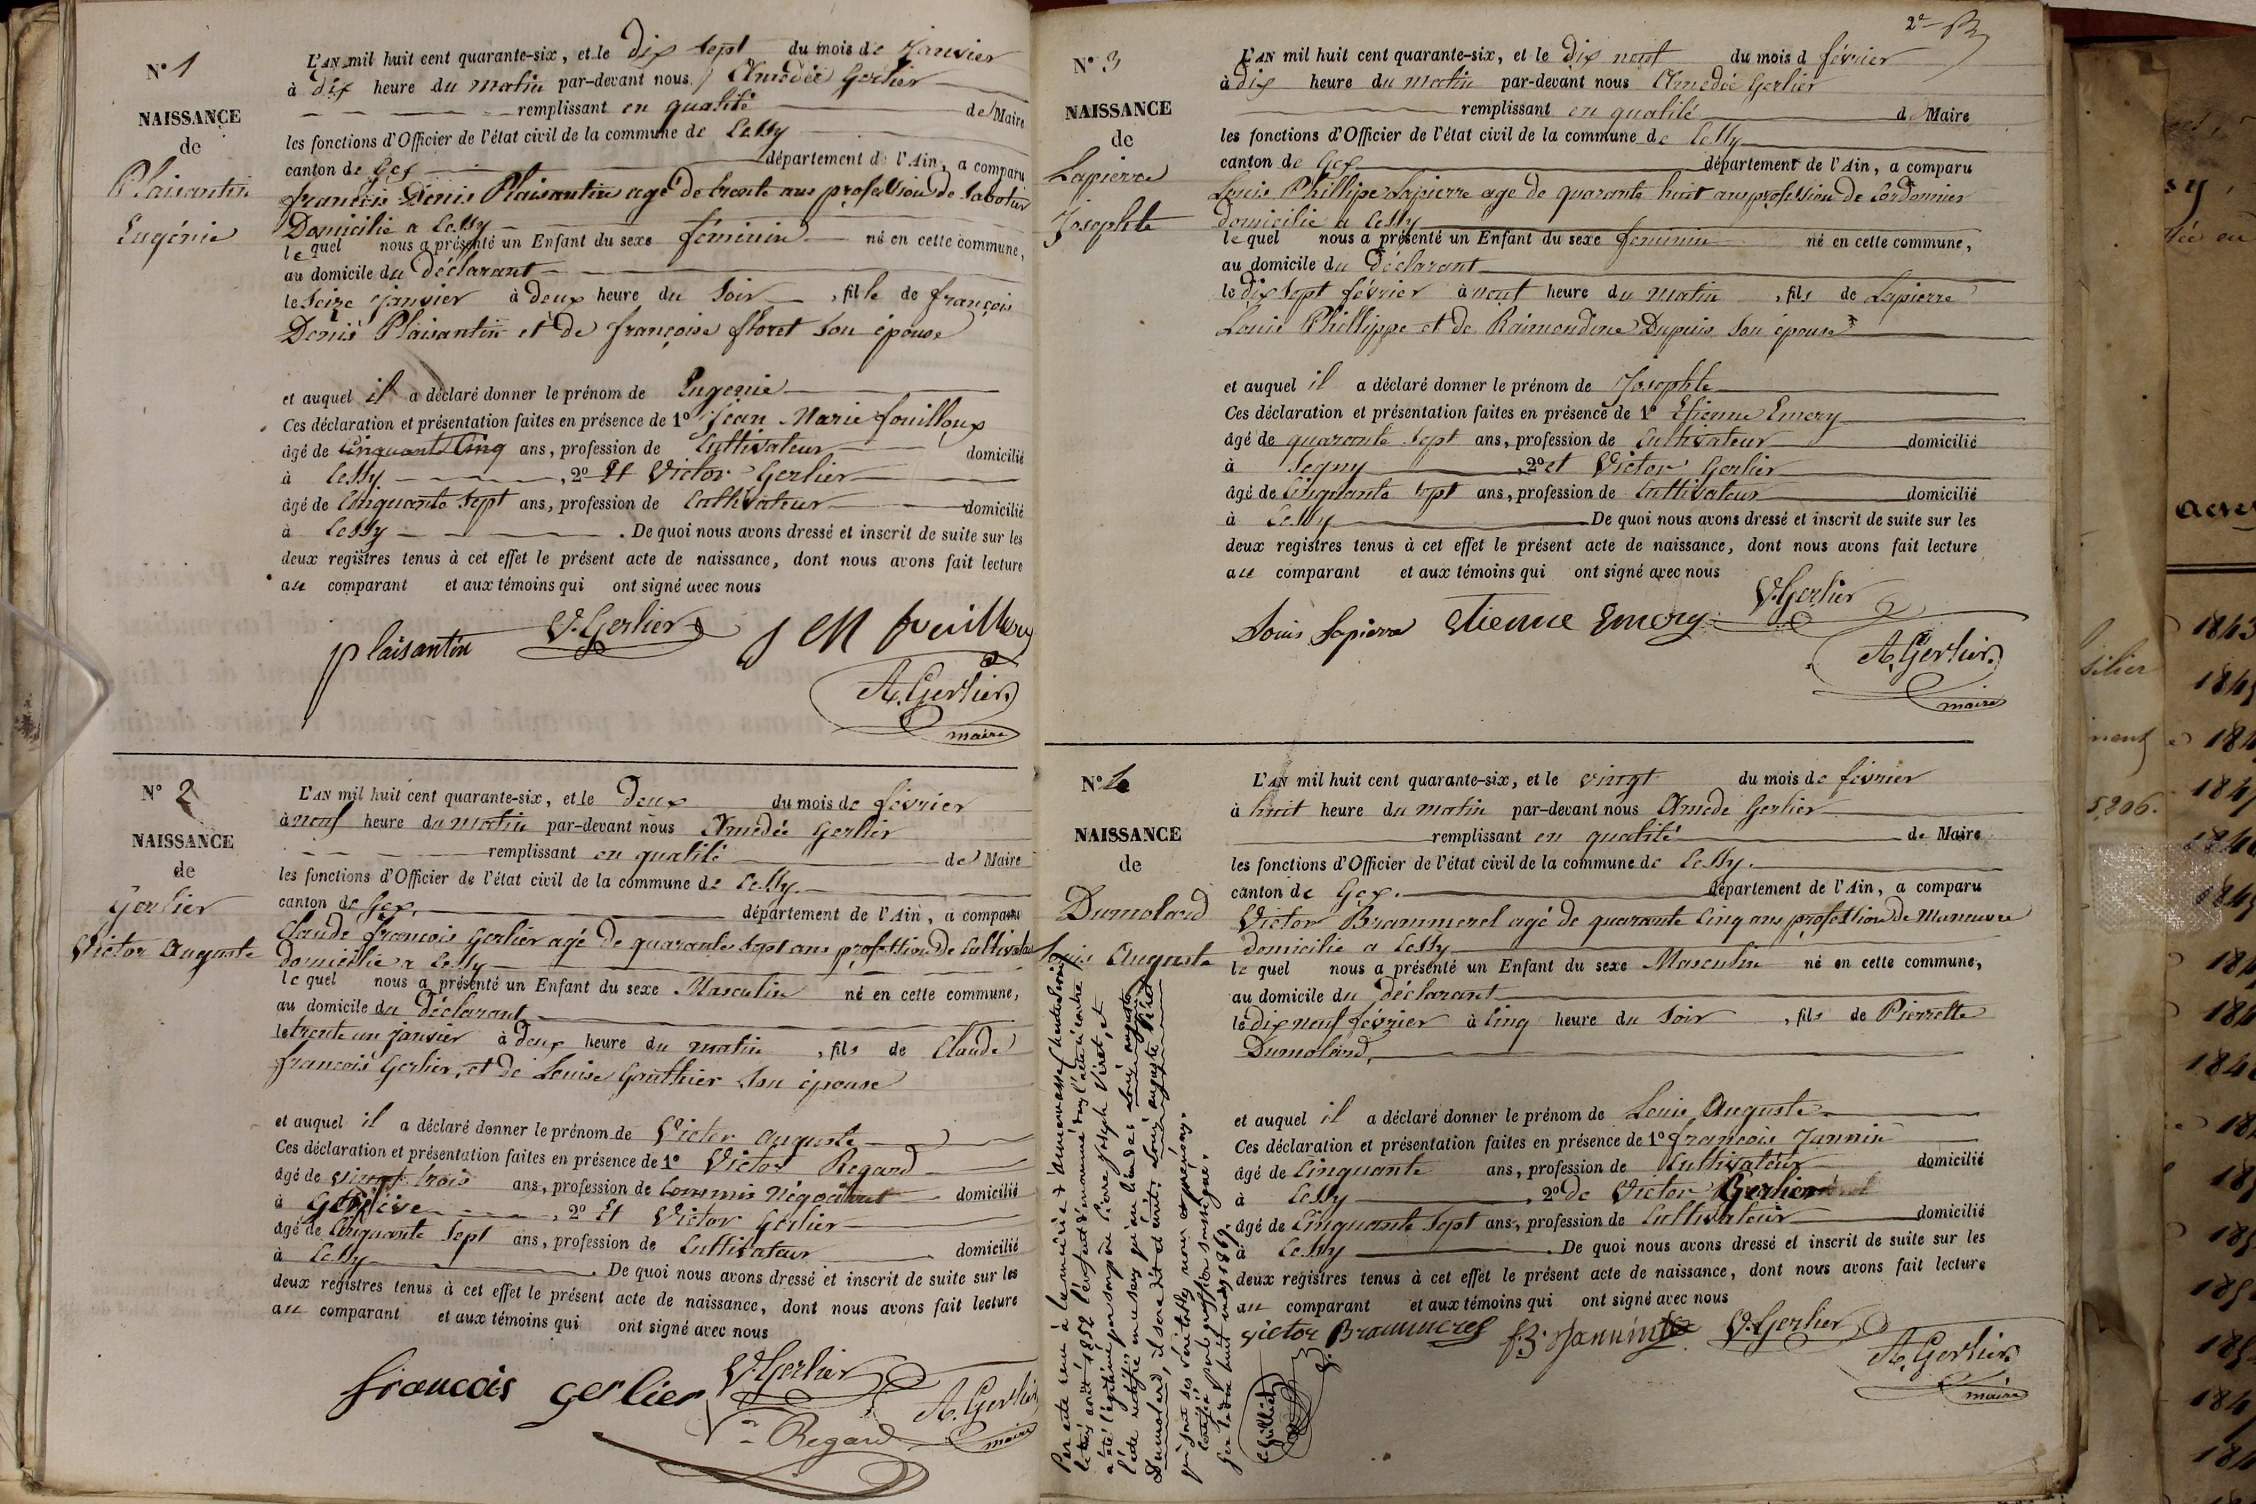 N° 1
NAISSANCE
de
Plaisantin
Eugénie
L'AN mil huit cent quarante-six, et le dix sept du mois de Janvier
à dix heure du matin par-devant nous Amédée Gerlier
remplissant en qualité de Maire
les fonctions d'Officier de l'état civil de la commune de Cessy
canton de Gex département de l'Ain, a comparu
françois Denis Plaisantin agé de trente ans profession de Sabotier
Domicilié a Cessy
le quel nous a présenté un Enfant du sexe feminin né en cette commune,
au domicile du déclarant
le Seize Janvier à deux heure du Soir, fille de françois
Denis Plaisantin et de françoise floret Son épouse
et auquel il a déclaré donner le prénom de Eugenie
Ces déclaration et présentation faites en présence de 1° Jean Marie fouilloux
âgé de Cinquante Cinq ans, profession de Cultivateur domicilié
à Cessy, 2° Et Victor Gerlier
âgé de Cinquante Sept ans, profession de Cultivateur domicilié
à Cessy. De quoi nous avons dressé et inscrit de suite sur les
deux registres tenus à cet effet le présent acte de naissance, dont nous avons fait lecture
au comparant et aux témoins qui ont signé avec nous
plaisantin V. Gerlier J M fouilloux
A. Gerlier
maire
N° 2
NAISSANCE
de
Gerlier
Victor Auguste
L'AN mil huit cent quarante-six, et le Deux du mois de février
à neuf heure du matin par-devant nous Amédée Gerlier
remplissant en qualité de Maire
les fonctions d'Officier de l'état civil de la commune de Cessy
canton de Gex, département de l'Ain, a comparu
Claude françois Gerlier agé de quarante Sept ans profession de Cultivateur
domicilié a Cessy
le quel nous a présenté un Enfant du sexe Masculin né en cette commune,
au domicile du Déclarant
le trente un janvier à deux heure du matin, fils de Claude
françois Gerlier, et de Louise Gouthier Son épouse
et auquel il a déclaré donner le prénom de Victor Auguste
Ces déclaration et présentation faites en présence de 1° Victor Regard
âgé de vingt trois ans, profession de Commis Négociant domicilié
à Genève, 2° Et Victor Gerlier
âgé de Cinquante Sept ans, profession de Cultivateur domicilié
à Cessy. De quoi nous avons dressé et inscrit de suite sur les
deux registres tenus à cet effet le présent acte de naissance, dont nous avons fait lecture
au comparant et aux témoins qui ont signé avec nous
françois gerlier V. Gerlier
Regard A. Gerlier
maire
N° 3
NAISSANCE
de
Lapierre
Josephte
L'AN mil huit cent quarante-six, et le dix neuf du mois d février
à dix heure du matin par-devant nous Amedée Gerlier
remplissant en qualité de Maire
les fonctions d'Officier de l'état civil de la commune de Cessy
canton de Gex département de l'Ain, a comparu
Louis Phillipe Lapierre age de quarante huit ans profession de Cordonnier
domicilié a Cessy
le quel nous a présenté un Enfant du sexe feminin né en cette commune,
au domicile du Déclarant
le dix Sept février à neuf heure du matin, fils de Lapierre
Louis Phillippe et de Raimondine Dupuis Son épouse
et auquel il a déclaré donner le prénom de Josephte
Ces déclaration et présentation faites en présence de 1° Etienne Emery
âgé de quarante Sept ans, profession de Cultivateur domicilié
à Segny, 2° et Victor Gerlier
âgé de Cinquante Sept ans, profession de Cultivateur domicilié
à Cessy De quoi nous avons dressé et inscrit de suite sur les
deux registres tenus à cet effet le présent acte de naissance, dont nous avons fait lecture
au comparant et aux témoins qui ont signé avec nous
Louis Lapierre Etienne Emery V. Gerlier
A. Gerlier
maire
N° 4
NAISSANCE
de
Dumolard
Louis Auguste
L'AN mil huit cent quarante-six, et le vingt du mois de février
à huit heure du matin par-devant nous Amede Gerlier
remplissant en qualité de Maire
les fonctions d'Officier de l'état civil de la commune de Cessy.
canton de Gex. département de l'Ain, a comparu
Victor Brammerel agé de quarante Cinq ans profession de Maneuvre
domicilié a Cessy
le quel nous a présenté un Enfant du sexe Masculin né en cette commune,
au domicile du déclarant
le dix neuf février à Cinq heure du Soir, fils de Pierrette
Dumolard,
et auquel il a déclaré donner le prénom de Louis Auguste
Ces déclaration et présentation faites en présence de 1° françois Jannin
âgé de Cinquante ans, profession de Cultivateur domicilié
à Cessy, 2° de Victor Gerlier
âgé de Cinquante Sept ans, profession de Cultivateur domicilié
à Cessy. De quoi nous avons dressé et inscrit de suite sur les
deux registres tenus à cet effet le présent acte de naissance, dont nous avons fait lecture
au comparant et aux témoins qui ont signé avec nous
victor Brammerel f.s. Jannin V. Gerlier
A. Gerlier
maire
Par acte reçu à la mairie
le août 1852 l'enfant dénommé dans l'acte ci contre
a été légitimé par Joseph Viret, et
l'acte rectifié en ce sens qu'au lieu de Louis auguste
Dumolard, il sera dit et écrit: Louis auguste Viret
qui sont ses véritables nom et prénoms.
Certifié par le greffier soussigné.
Gex le dix huit 1869.